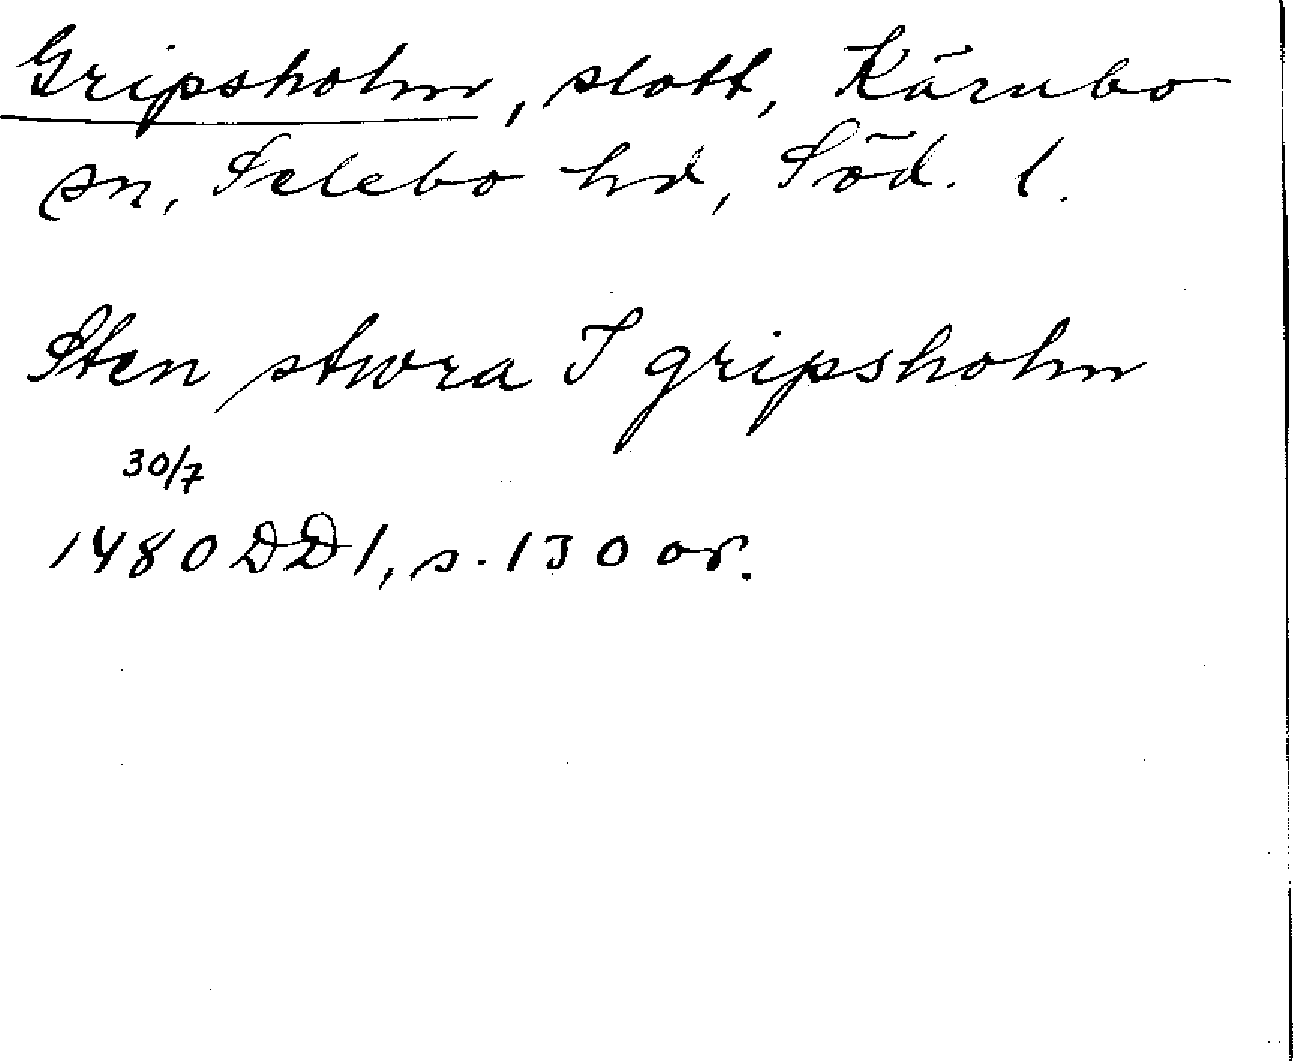 Gripsholm, slott, Kärnbo
sn, Selebo hd, Söd. l.
Sten stwra I gripsholm
30/7
1480 DD1, s. 130 or.